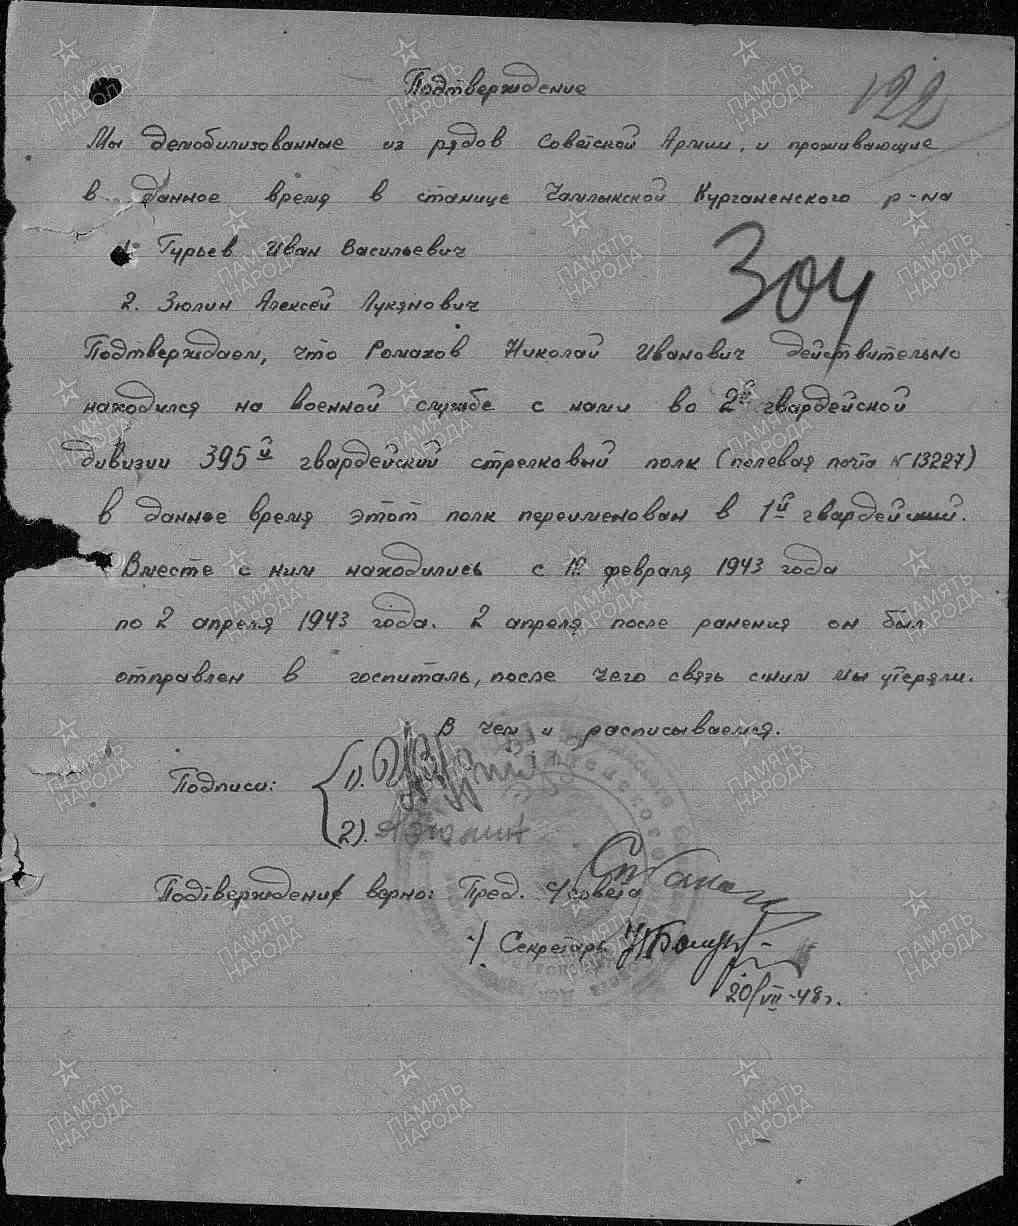 Подтверждение
122
Мы демобилизованные из рядов Советской Армии, и проживающие
в данное время в станице Чамлыкской Курганенского р-на
1. Гурьев Иван Васильевич
304
2. Зюлин Алексей Лукянович
Подтверждаем, что Ромахов Николай Иванович действительно
находился на военной службе с нами во 2й гвардейской
дивизии 395й гвардейский стрелковый полк (полевая почта N 13227)
в данное время этот полк переименован в 1й гвардейский.
Вместе с ним находились с 10 февраля 1943 года
по 2 апреля 1943 года. 2 апреля после ранения он был
отправлен в госпиталь, после чего связь сним мы утеряли.
В чем и расписываемся.
Подписи: 1).
2). АЗюлин
Подтверждение верно: Пред. с/совета
Секретарь
20/VII-48г.
ПАМЯТЬ НАРОДА